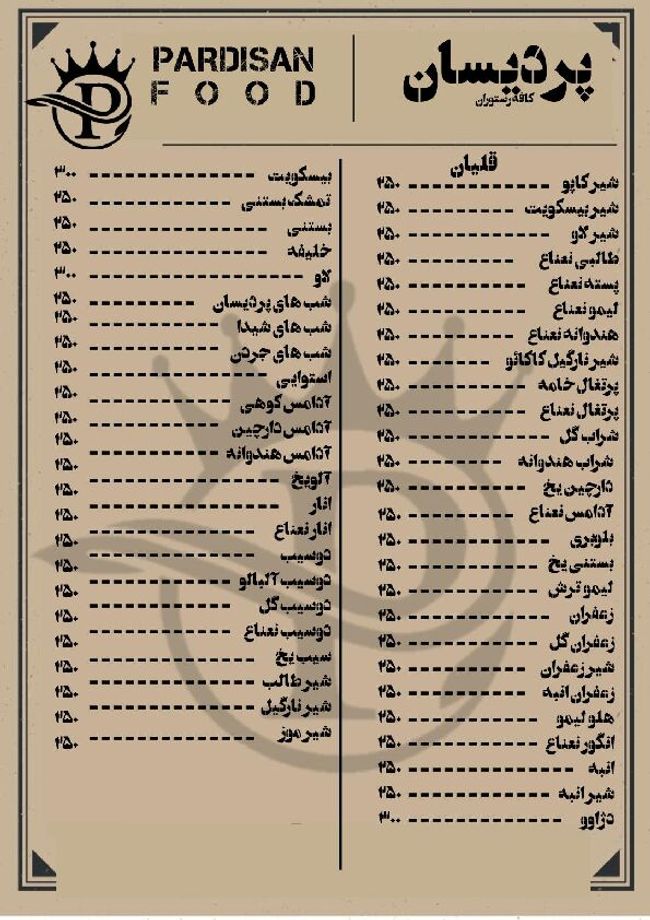 PARDISAN
FOOD
پردیسان
کافه رستوران
قلیان
شیر کاپو ۲۵۰
شیر بیسکویت ۲۵۰
شیر لاو ۲۵۰
طالبی نعناع ۲۵۰
پسته نعناع ۲۵۰
لیمو نعناع ۲۵۰
هندوانه نعناع ۲۵۰
شیر نارگیل کاکائو ۲۵۰
پرتغال خامه ۲۵۰
پرتغال نعناع ۲۵۰
شراب گل ۲۵۰
شراب هندوانه ۲۵۰
دارچین یخ ۲۵۰
آدامس نعناع ۲۵۰
بلوبری ۲۵۰
بستنی یخ ۲۵۰
لیمو ترش ۲۵۰
زعفران ۲۵۰
زعفران گل ۲۵۰
شیر زعفران ۲۵۰
زعفران انبه ۲۵۰
هلو لیمو ۲۵۰
انگور نعناع ۲۵۰
انبه ۲۵۰
شیر انبه ۲۵۰
دژاوو ۳۰۰
بیسکویت ۳۰۰
تمشک بستنی ۲۵۰
بستنی ۲۵۰
خلیفه ۲۵۰
لاو ۳۰۰
شب های پردیسان ۲۵۰
شب های شیدا ۲۵۰
شب های جردن ۲۵۰
استوایی ۲۵۰
آدامس کوهی ۲۵۰
آدامس دارچین ۲۵۰
آدامس هندوانه ۲۵۰
آلویخ ۲۵۰
انار ۲۵۰
انار نعناع ۲۵۰
دوسیب ۲۵۰
دوسیب آلبالو ۲۵۰
دوسیب گل ۲۵۰
دوسیب نعناع ۲۵۰
سیب یخ ۲۵۰
شیر طالب ۲۵۰
شیر نارگیل ۲۵۰
شیر موز ۲۵۰